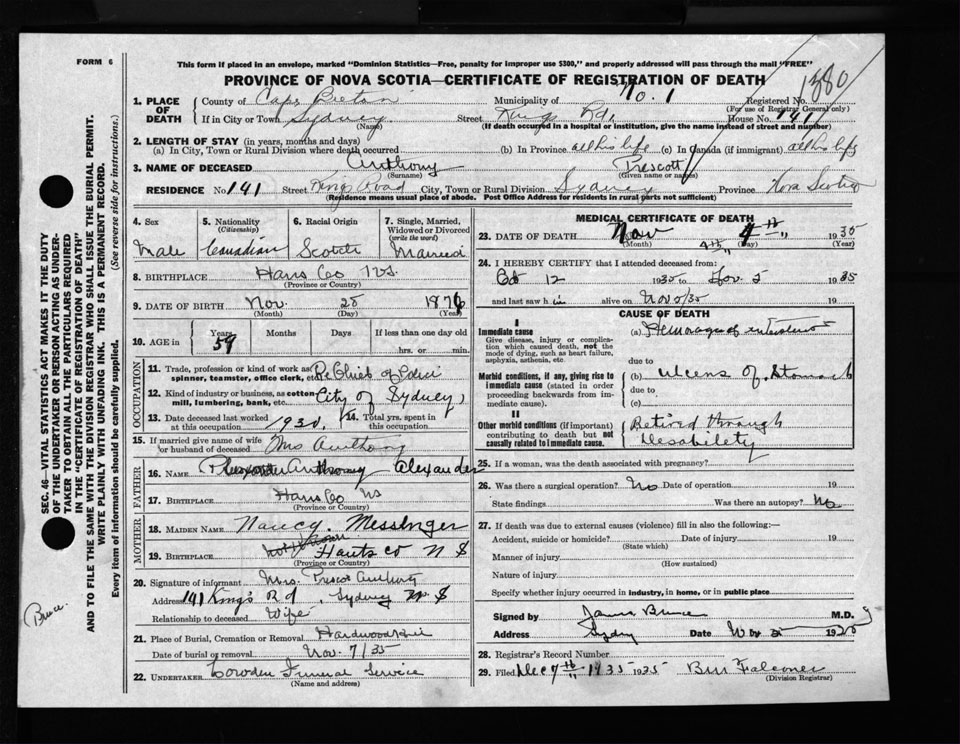 FORM 6
This form if placed in an envelope, marked "Dominion Statistics—Free, penalty for improper use $300," and properly addressed will pass through the mail "FREE"
PROVINCE OF NOVA SCOTIA—CERTIFICATE OF REGISTRATION OF DEATH
1380
1. PLACE OF DEATH
County of Cape Breton Municipality of No. 1 Registered No.
(For use of Registrar General only)
If in City or Town Sydney Street Kings Rd. House No. 141
(Name) (If death occurred in a hospital or institution, give the name instead of street and number)
2. LENGTH OF STAY (in years, months and days)
(a) In City, Town or Rural Division where death occurred (b) In Province all his life (c) In Canada (if immigrant) all his life
3. NAME OF DECEASED Anthony Prescott
(Surname) (Given name or names)
RESIDENCE No 141 Street Kings Road City, Town or Rural Division Sydney Province Nova Scotia
(Residence means usual place of abode. Post Office Address for residents in rural parts not sufficient)
4. Sex Male
5. Nationality (Citizenship) Canadian
6. Racial Origin Scotch
7. Single, Married, Widowed or Divorced (write the word) Married
8. BIRTHPLACE Hans Co NS.
(Province or Country)
9. DATE OF BIRTH Nov. 28 1876
(Month) (Day) (Year)
10. AGE in Years Months Days If less than one day old
59 hrs. or min.
OCCUPATION
11. Trade, profession or kind of work as spinner, teamster, office clerk, etc. Chief of Police
12. Kind of industry or business, as cotton mill, lumbering, bank, etc. City of Sydney
13. Date deceased last worked at this occupation 1930.
14. Total yrs. spent in this occupation
15. If married give name of wife or husband of deceased Mrs Anthony
FATHER
16. NAME Anthony Alexander
17. BIRTHPLACE Hans Co NS
(Province or Country)
MOTHER
18. MAIDEN NAME Nancy. Messinger
19. BIRTHPLACE Hants Co N S
(Province or Country)
20. Signature of informant Mrs. Prescot Anthony
Address 141 King's Rd, Sydney N. S
Relationship to deceased Wife
21. Place of Burial, Cremation or Removal Hardwood
Date of burial or removal Nov. 7/35
22. UNDERTAKER Funeral Service
(Name and address)
MEDICAL CERTIFICATE OF DEATH
23. DATE OF DEATH Nov 4th 1935
(Month) 4th (Day) (Year)
24. I HEREBY CERTIFY that I attended deceased from:
Oct 12 1935 to Nov. 5 1935
and last saw h alive on Nov 5/35 19
CAUSE OF DEATH
I
Immediate cause
Give disease, injury or complication which caused death, not the mode of dying, such as heart failure, asphyxia, asthenia, etc.
(a) of
due to
Morbid conditions, if any, giving rise to immediate cause (stated in order proceeding backwards from immediate cause).
(b) Ulcers of Stomach
due to
(c)
II
Other morbid conditions (if important) contributing to death but not causally related to immediate cause.
Retired through
Desability
25. If a woman, was the death associated with pregnancy?
26. Was there a surgical operation? No Date of operation 19
State findings Was there an autopsy? No
27. If death was due to external causes (violence) fill in also the following:—
Accident, suicide or homicide? Date of injury 19
(State which)
Manner of injury
(How sustained)
Nature of injury
Specify whether injury occurred in industry, in home, or in public place
Signed by James Bruce M.D.
Address Sydney Date Nov 1935
28. Registrar's Record Number
29. Filed Dec 7th 1935 1935 Falconer
(Division Registrar)
SEC. 46—VITAL STATISTICS ACT MAKES IT THE DUTY
OF THE UNDERTAKER OR PERSON ACTING AS UNDERTAKER TO OBTAIN ALL THE PARTICULARS REQUIRED
IN THE "CERTIFICATE OF REGISTRATION OF DEATH"
AND TO FILE THE SAME WITH THE DIVISION REGISTRAR WHO SHALL ISSUE THE BURIAL PERMIT.
WRITE PLAINLY WITH UNFADING INK. THIS IS A PERMANENT RECORD.
Every item of information should be carefully supplied. (See reverse side for instructions.)
Bruce.